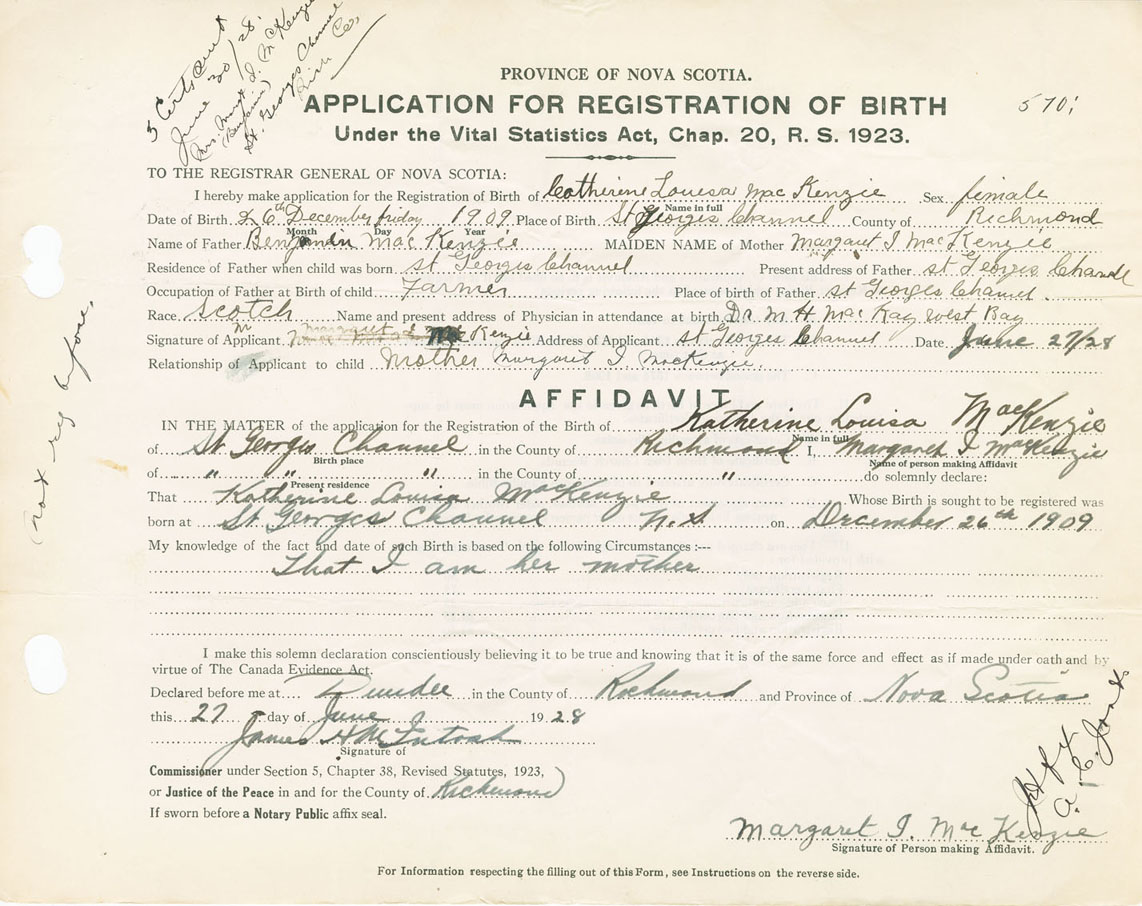 3 Certs sent
June 30/28.
Mrs. Margt I. McKenzie
(Benjamin)
St. Georges Channel
Rich Co.
PROVINCE OF NOVA SCOTIA.
APPLICATION FOR REGISTRATION OF BIRTH
570
Under the Vital Statistics Act, Chap. 20, R. S. 1923.
TO THE REGISTRAR GENERAL OF NOVA SCOTIA:
I hereby make application for the Registration of Birth of Catherine Louisa Mac Kenzie Sex female
Name in full
Date of Birth 26th December friday 1909 Place of Birth St Georges Channel County of Richmond
Month Day Year
Name of Father Benjamin Mac Kenzie MAIDEN NAME of Mother Margaret I Mac Kenzie
Residence of Father when child was born st Georges Channel Present address of Father st Georges Channel
Occupation of Father at Birth of child Farmer Place of birth of Father st Georges Channel.
Race Scotch Name and present address of Physician in attendance at birth Dr. M H. Mac Kay west Bay
Signature of Applicant Kenzie Address of Applicant st Georges Channel Date June 27/28
Relationship of Applicant to child Mother Margaret I. MacKenzie.
AFFIDAVIT
IN THE MATTER of the application for the Registration of the Birth of Katherine Louisa MacKenzie
Name in full
of St Georges Channel in the County of Richmond I, Margaret I MacKenzie
Birth place Name of person making Affidavit
of " " " in the County of " do solemnly declare:
Present residence
That Katherine Louisa MacKenzie Whose Birth is sought to be registered was
born at St Georges Channel N.S on December 26th 1909
My knowledge of the fact and date of such Birth is based on the following Circumstances :---
That I am her mother
I make this solemn declaration conscientiously believing it to be true and knowing that it is of the same force and effect as if made under oath and by
virtue of The Canada Evidence Act.
Declared before me at Dundee in the County of Richmond and Province of Nova Scotia
this 27 day of June 1928
James H McIntosh
Signature of
Commissioner under Section 5, Chapter 38, Revised Statutes, 1923,
or Justice of the Peace in and for the County of Richmond)
If sworn before a Notary Public affix seal.
Margaret I. Mac Kenzie
Signature of Person making Affidavit.
For Information respecting the filling out of this Form, see Instructions on the reverse side.
(not reg before.